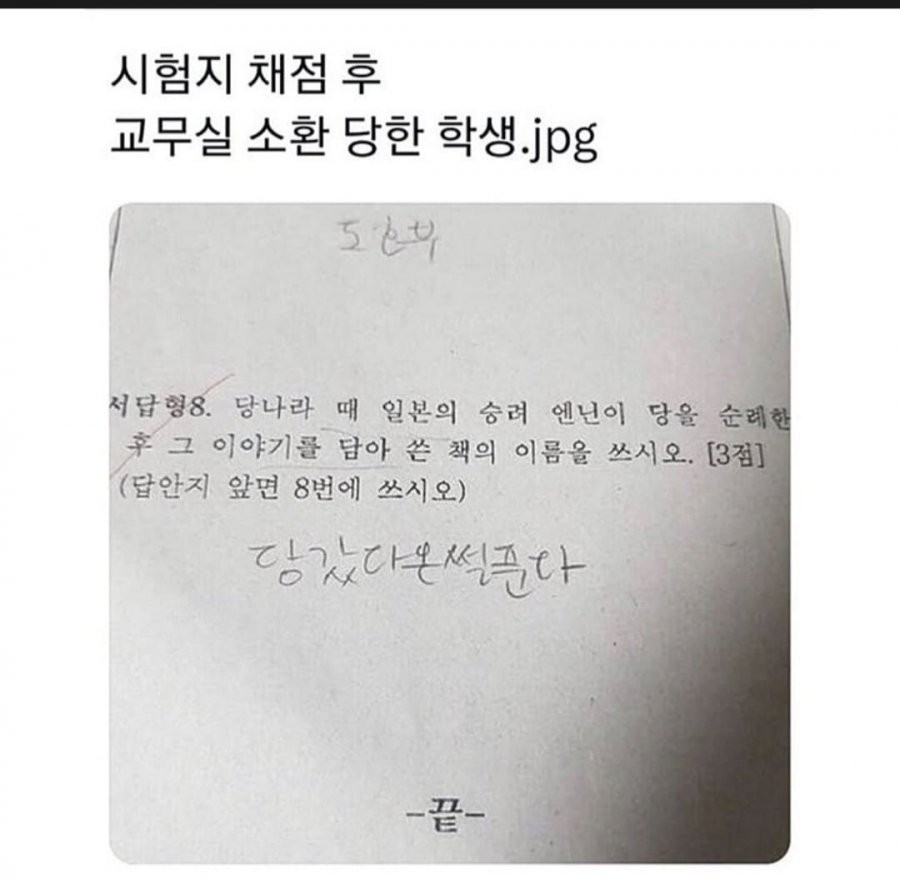 시험지 채점 후
교무실 소환 당한 학생.jpg
도호부
서답형8. 당나라 때 일본의 승려 엔닌이 당을 순례한
후 그 이야기를 담아 쓴 책의 이름을 쓰시오. [3점]
(답안지 앞면 8번에 쓰시오)
당갔다온썰푼다
-끝-